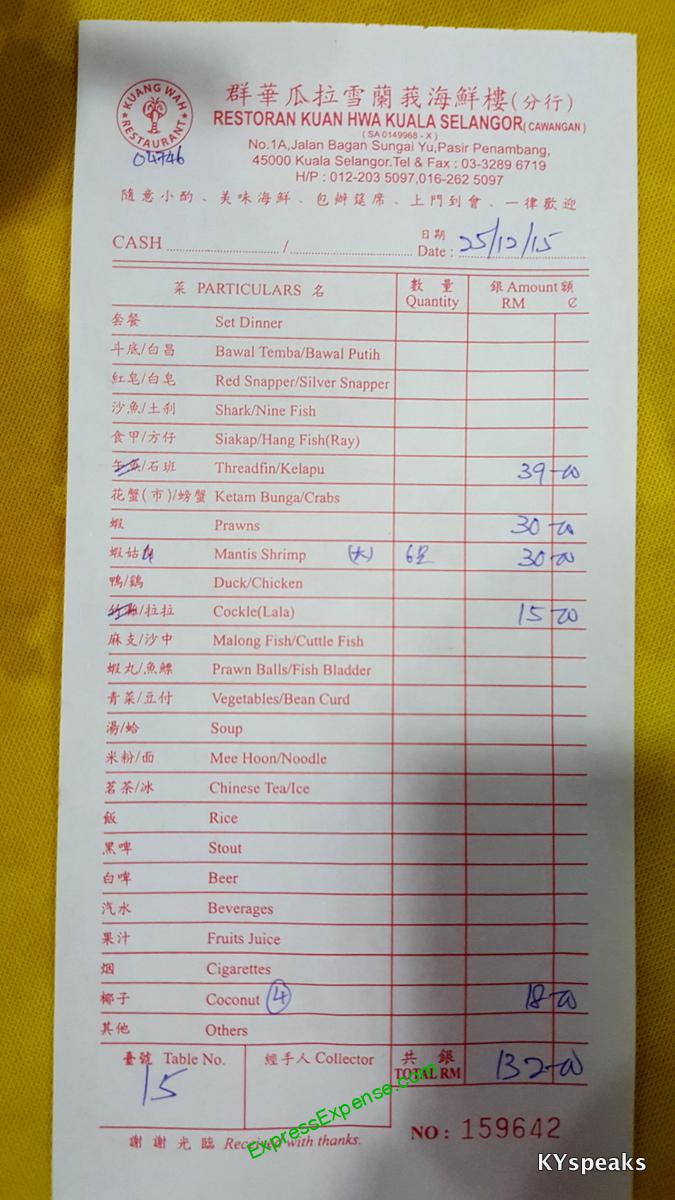 KUANG WAH RESTAURANT
04746
群華瓜拉雪蘭莪海鮮樓(分行)
RESTORAN KUAN HWA KUALA SELANGOR(CAWANGAN)
(SA 0149968 - X)
No.1A,Jalan Bagan Sungai Yu,Pasir Penambang,
45000 Kuala Selangor.Tel & Fax : 03-3289 6719
H/P : 012-203 5097,016-262 5097
隨意小酌、美味海鮮、包辦筵席、上門到會、一律歡迎
CASH / 日期 Date : 25/12/15
菜 PARTICULARS 名 數量 Quantity 銀 Amount 額 RM ¢
套餐 Set Dinner
斗底/白昌 Bawal Temba/Bawal Putih
紅皂/白皂 Red Snapper/Silver Snapper
沙魚/土剎 Shark/Nine Fish
食甲/方仔 Siakap/Hang Fish(Ray)
/石班 Threadfin/Kelapu 39-00
花蟹(市)/螃蟹 Ketam Bunga/Crabs
蝦 Prawns 30-00
蝦姑 Mantis Shrimp (大) 6 30-00
鴨/鷄 Duck/Chicken
/拉拉 Cockle(Lala) 15-00
麻支/沙中 Malong Fish/Cuttle Fish
蝦丸/魚鰾 Prawn Balls/Fish Bladder
青菜/豆付 Vegetables/Bean Curd
湯/蛤 Soup
米粉/面 Mee Hoon/Noodle
茗茶/冰 Chinese Tea/Ice
飯 Rice
黑啤 Stout
白啤 Beer
汽水 Beverages
果汁 Fruits Juice
烟 Cigarettes
椰子 Coconut 4 18-00
其他 Others
臺號 Table No. 15 經手人 Collector 共銀 TOTAL RM 132-00
謝謝光臨 Received with thanks. NO : 159642
ExpressExpense.com
KYspeaks